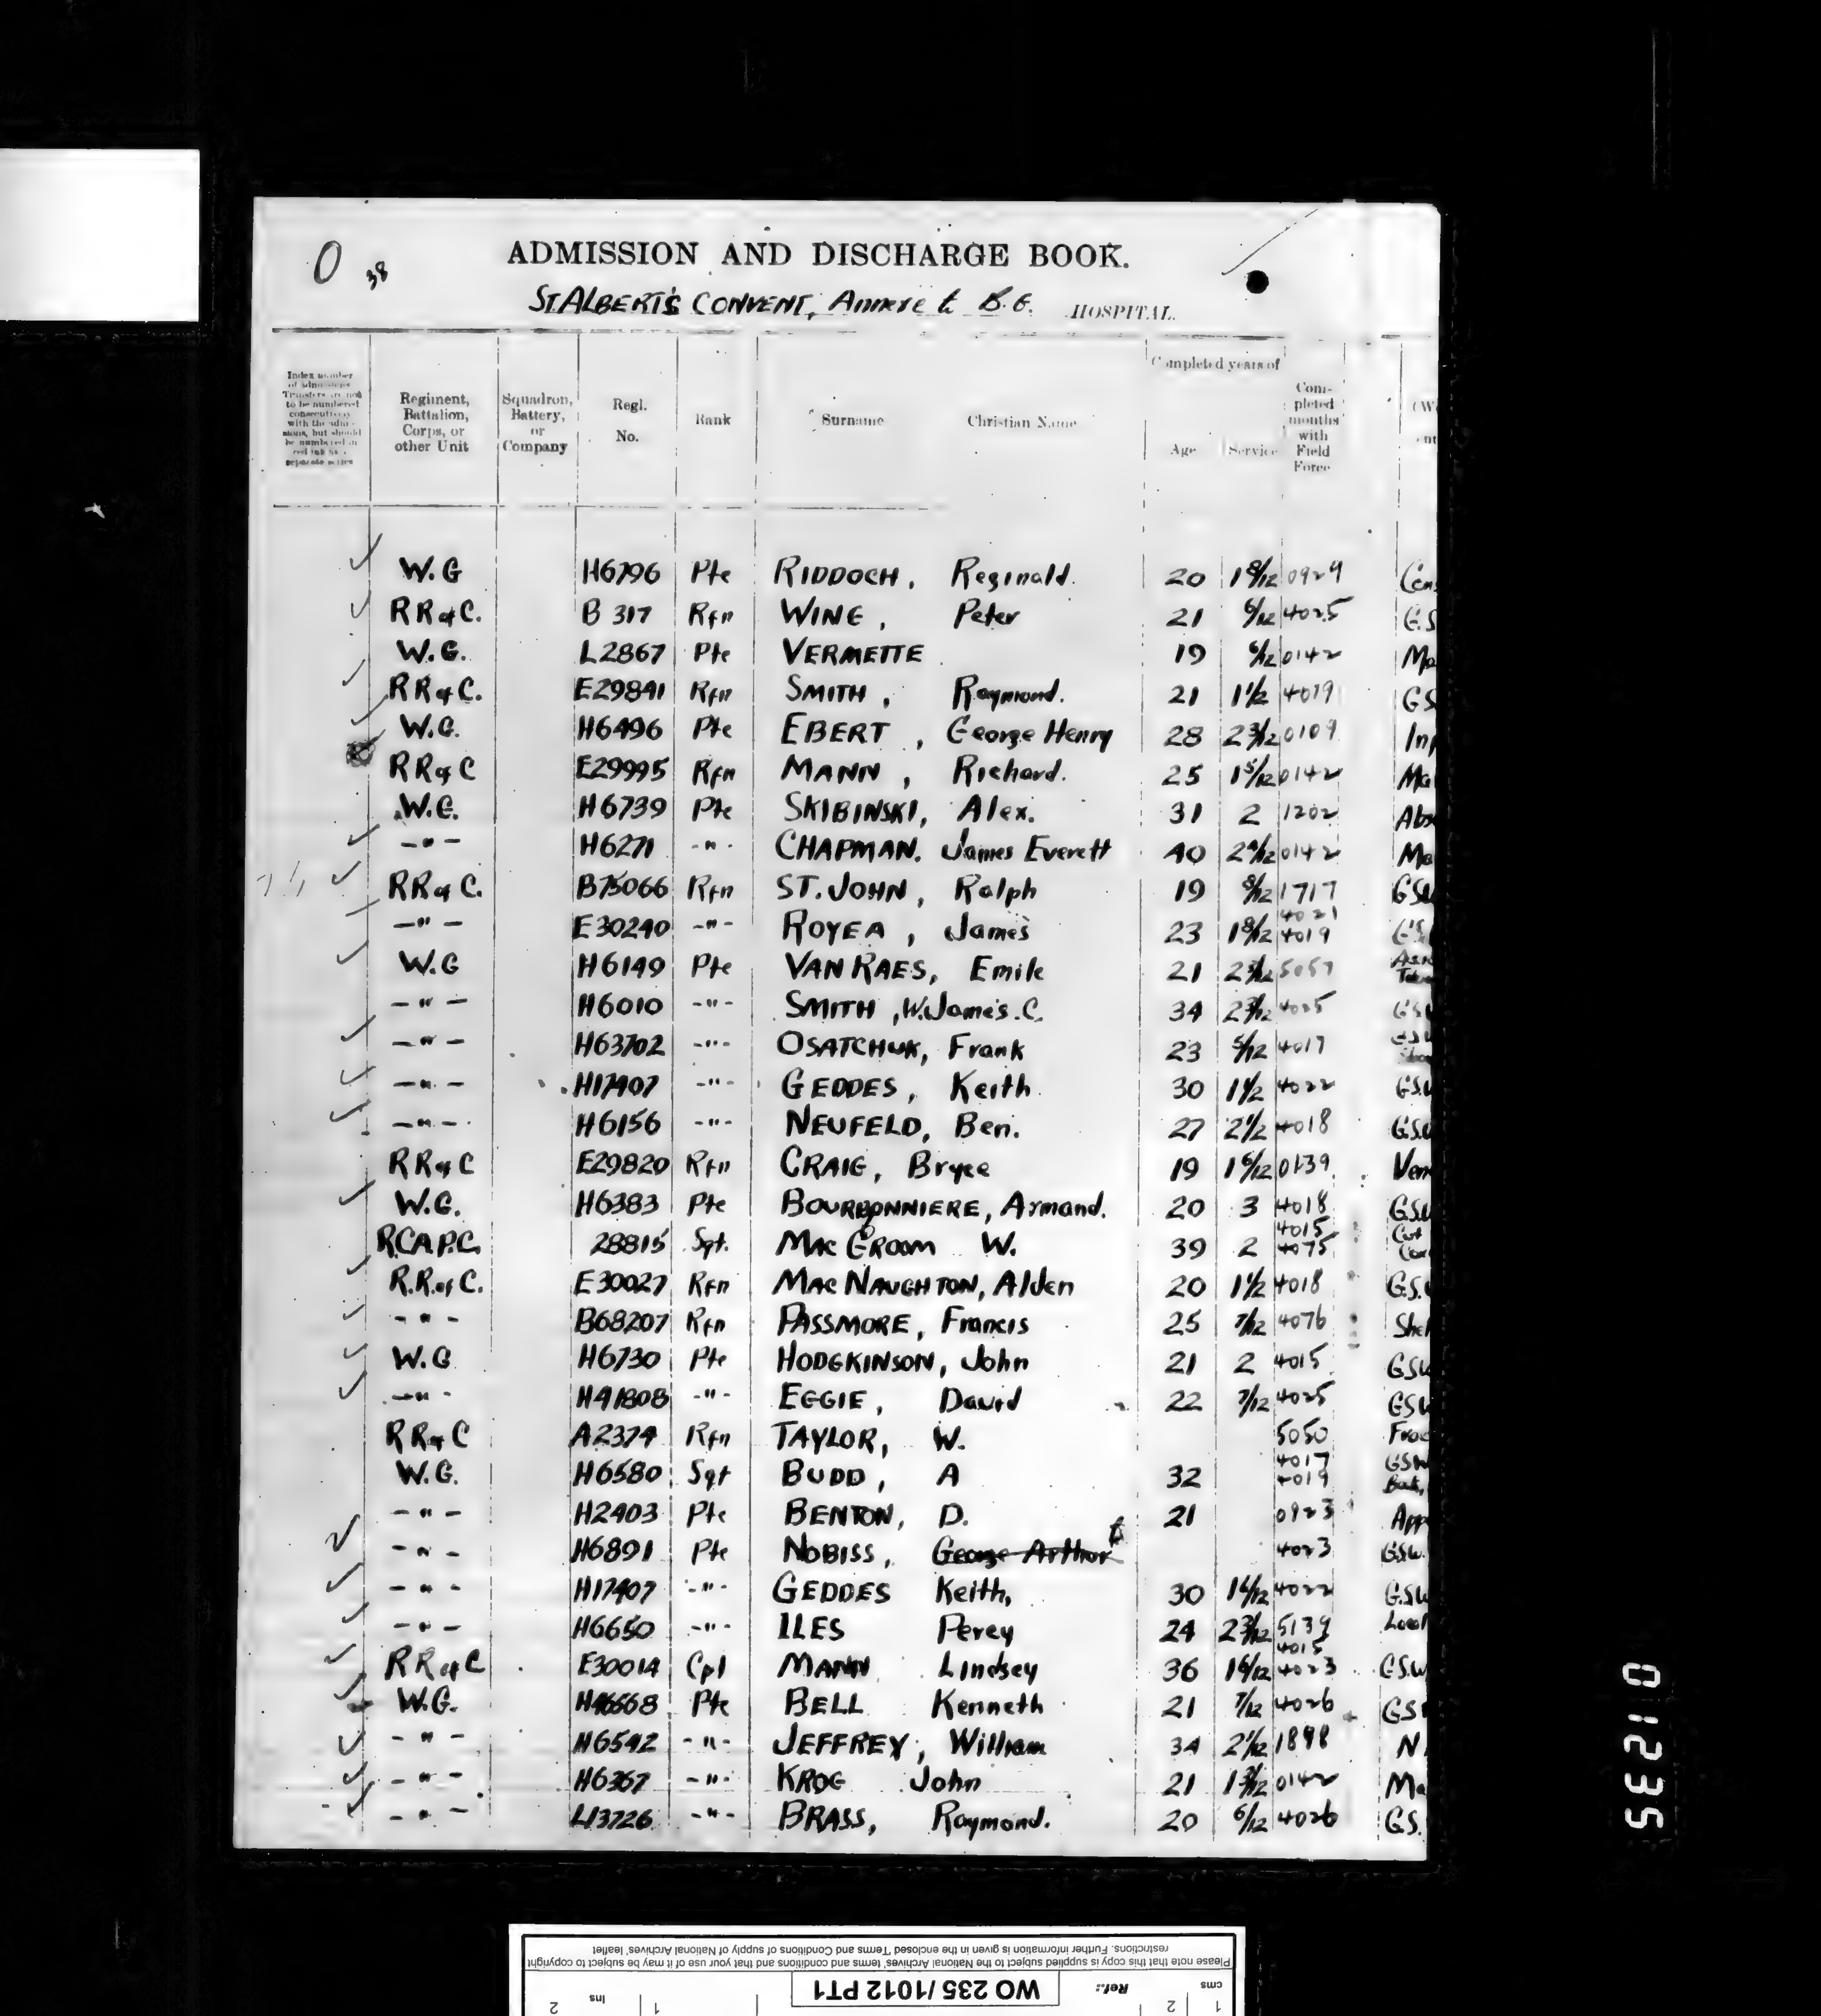 O 38
ADMISSION AND DISCHARGE BOOK.
ST. ALBERT'S CONVENT, Annexe to B.G. HOSPITAL.
Index number of admissions Transfers are not to be numbered consecutively with the admissions, but should be numbered in red ink in a separate series
Regiment, Battalion, Corps, or other Unit
Squadron, Battery, or Company
Regl. No.
Rank
Surname
Christian Name
Completed years of
Age
Service
Completed months with Field Force
W.G H6796 Pte RIDDOCH, Reginald. 20 1 8/12 0929 Con
RRofC. B 317 Rfn WING, Peter 21 6/12 4025 G.S
W.G. L2867 Pte VERMETTE 19 6/12 0142 Ma
RRofC. E29891 Rfn SMITH, Raymond. 21 1 1/2 4019 GS
W.G. H6496 Pte EBERT, George Henry 28 2 3/12 0109 Inj
RRofC E29995 Rfn MANN, Richard. 25 1 5/12 0142 Ma
W.G. H6739 Pte SKIBINSKI, Alex. 31 2 1202 Abs
-"- H6271 -"- CHAPMAN. James Everett 40 2 4/12 0142 Ma
RRof C. B75066 Rfn ST. JOHN, Ralph 19 8/12 1717 GSW
-"- E30240 -"- ROYEA, James 23 1 8/12 4021 4019 G.S.
W.G H6149 Pte VAN RAES, Emile 21 2 3/12 5057
-"- H6010 -"- SMITH, W. James. C. 34 2 3/12 4025 GSW
-"- H63702 -"- OSATCHUK, Frank 23 5/12 4017 GSW
-"- H17407 -"- GEDDES, Keith. 30 1 1/2 4022 G.S.W
-"- H6156 -"- NEUFELD, Ben. 27 2 1/2 4018 G.S.W
RRofC E29820 Rfn CRAIG, Bryce 19 1 6/12 0139 Ven
W.G. H6383 Pte BOURBONNIERE, Armand. 20 3 4018 G.S.W
R.C.A.P.C. 28815 Sgt. MAC GROOM W. 39 2 4015 4075 Cut Con
R.R.of C. E30027 Rfn MAC NAUGHTON, Alden 20 1 1/2 4018 G.S.
-"- B68207 Rfn PASSMORE, Francis 25 7/12 4076 Shel
W.G H6730 Pte HODGKINSON, John 21 2 4015 GSW
-"- H41808 -"- EGGIE, David 22 7/12 4025 GSW
RRofC A2374 Rfn TAYLOR, W. 5050 Frac
W.G. H6580 Sgt BUDD, A 32 4017 4019 GSW Back,
-"- H2403 Pte BENTON, D. 21 0923 App
-"- H6891 Pte NOBISS, George Arthur 4023 G.S.W.
-"- H17407 -"- GEDDES Keith, 30 1 6/12 4022 G.S.W
-"- H6650 -"- ILES Percy 24 2 3/12 5139 Local
RRofC E30014 Cpl MANN Lindsey 36 1 6/12 4015 4023 G.S.W
W.G. H46568 Pte BELL Kenneth 21 7/12 4026 GS
-"- H6542 -"- JEFFREY, William 34 2 1/12 1898 N
-"- H6367 -"- KROG John 21 1 3/12 0142 Ma
-"- L13726 -"- BRASS, Raymond. 20 6/12 4026 G.S.
01235
Please note that this copy is supplied subject to the National Archives' terms and conditions and that your use of it may be subject to copyright restrictions. Further information is given in the enclosed 'Terms and Conditions of supply of National Archives' leaflet
cms 1 2 Ref.: WO 235 / 1012 PT1 1 ins 2